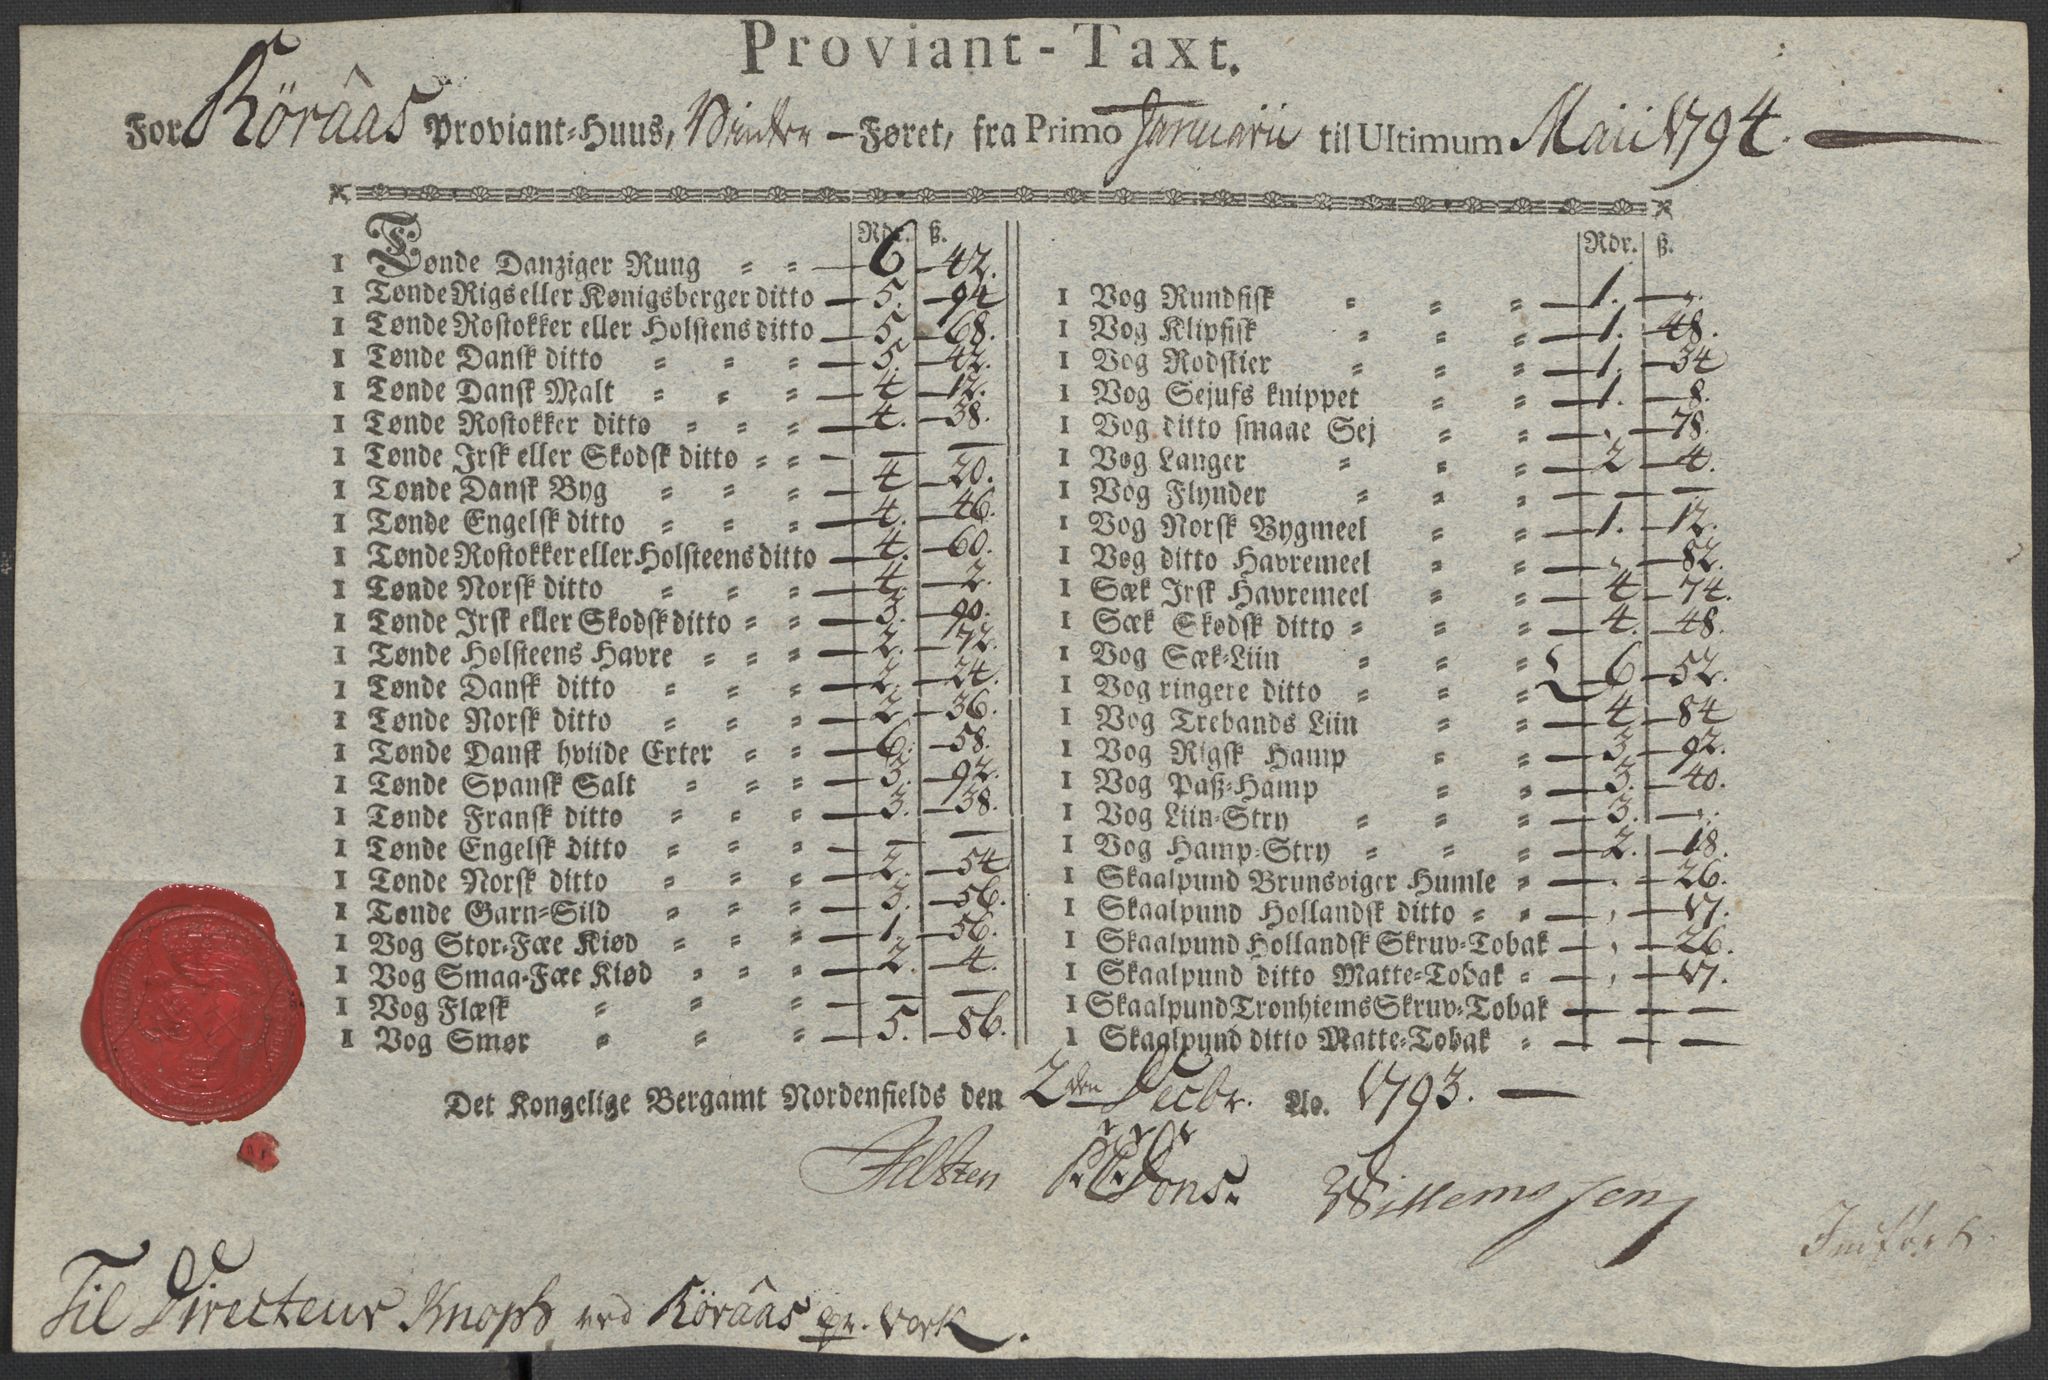 Proviant-Taxt.
For Röraas Proviant-Huus, Vinter - Føret, fra Primo Januarii til Ultimum Maii 1794.
Rdr. ß.
1 Tønde Danziger Rung 6 42.
1 Tønde Rigs eller Kønigsberger ditto 5. 94
1 Tønde Rostokker eller Holstens ditto 5. 68.
1 Tønde Dansk ditto 5. 42.
1 Tønde Dansk Malt 4 12.
1 Tønde Rostokker ditto 4. 38.
1 Tønde Irsk eller Skodsk ditto — —
1 Tønde Dansk Byg 4 20.
1 Tønde Engelsk ditto 4. 46.
1 Tønde Rostokker eller Holsteens ditto 4. 60.
1 Tønde Norsk ditto 4. 2.
1 Tønde Irsk eller Skodsk ditto 3. 90.
1 Tønde Holsteens Havre 2. 72.
1 Tønde Dansk ditto 2. 24.
1 Tønde Norsk ditto 2. 36.
1 Tønde Dansk hviide Erter 6. 58.
1 Tønde Spansk Salt 3. 92.
1 Tønde Fransk ditto 3. 38.
1 Tønde Engelsk ditto — —
1 Tønde Norsk ditto 2. 54
1 Tønde Garn-Sild 3. 56.
1 Vog Stor-Fæe Kiød 1. 56.
1 Vog Smaa-Fæe Kiød 2. 4.
1 Vog Flæsk — —
1 Vog Smør 5. 86.
Rdr. ß.
1 Vog Rundfisk 1. „.
1 Vog Klipfisk 1. 48.
1 Vog Rodskier 1. 34
1 Vog Sejufs knippet 1. 8.
1 Vog ditto smaae Sej „ 78.
1 Vog Langer 2 4.
1 Vog Flynder — —
1 Vog Norsk Bygmeel 1. 12.
1 Vog ditto Havremeel „ 82.
1 Sæk Irsk Havremeel 4 74.
1 Sæk Skodsk ditto 4. 48.
1 Vog Sæk-Liin
1 Vog ringere ditto } 6 52.
1 Vog Trebands Liin 4 84
1 Vog Rigsk Hamp 3. 92.
1 Vog Paß-Hamp 3. 40.
1 Vog Liin-Stry 3. „.
1 Vog Hamp-Stry 2. 18.
1 Skaalpund Brunsviger Humle „ 26.
1 Skaalpund Hollandsk ditto „ 17.
1 Skaalpund Hollandsk Skruv-Tobak „ 26.
1 Skaalpund ditto Matte-Tobak „ 17.
1 Skaalpund Tronhiems Skruv-Tobak — —
1 Skaalpund ditto Matte-Tobak — —
Det Kongelige Bergamt Nordenfields den 2den Decbr. Ao. 1793.
Dons. Willemssen
Indført.
Til Directeur Knoph ved Röraas pr. Verk.